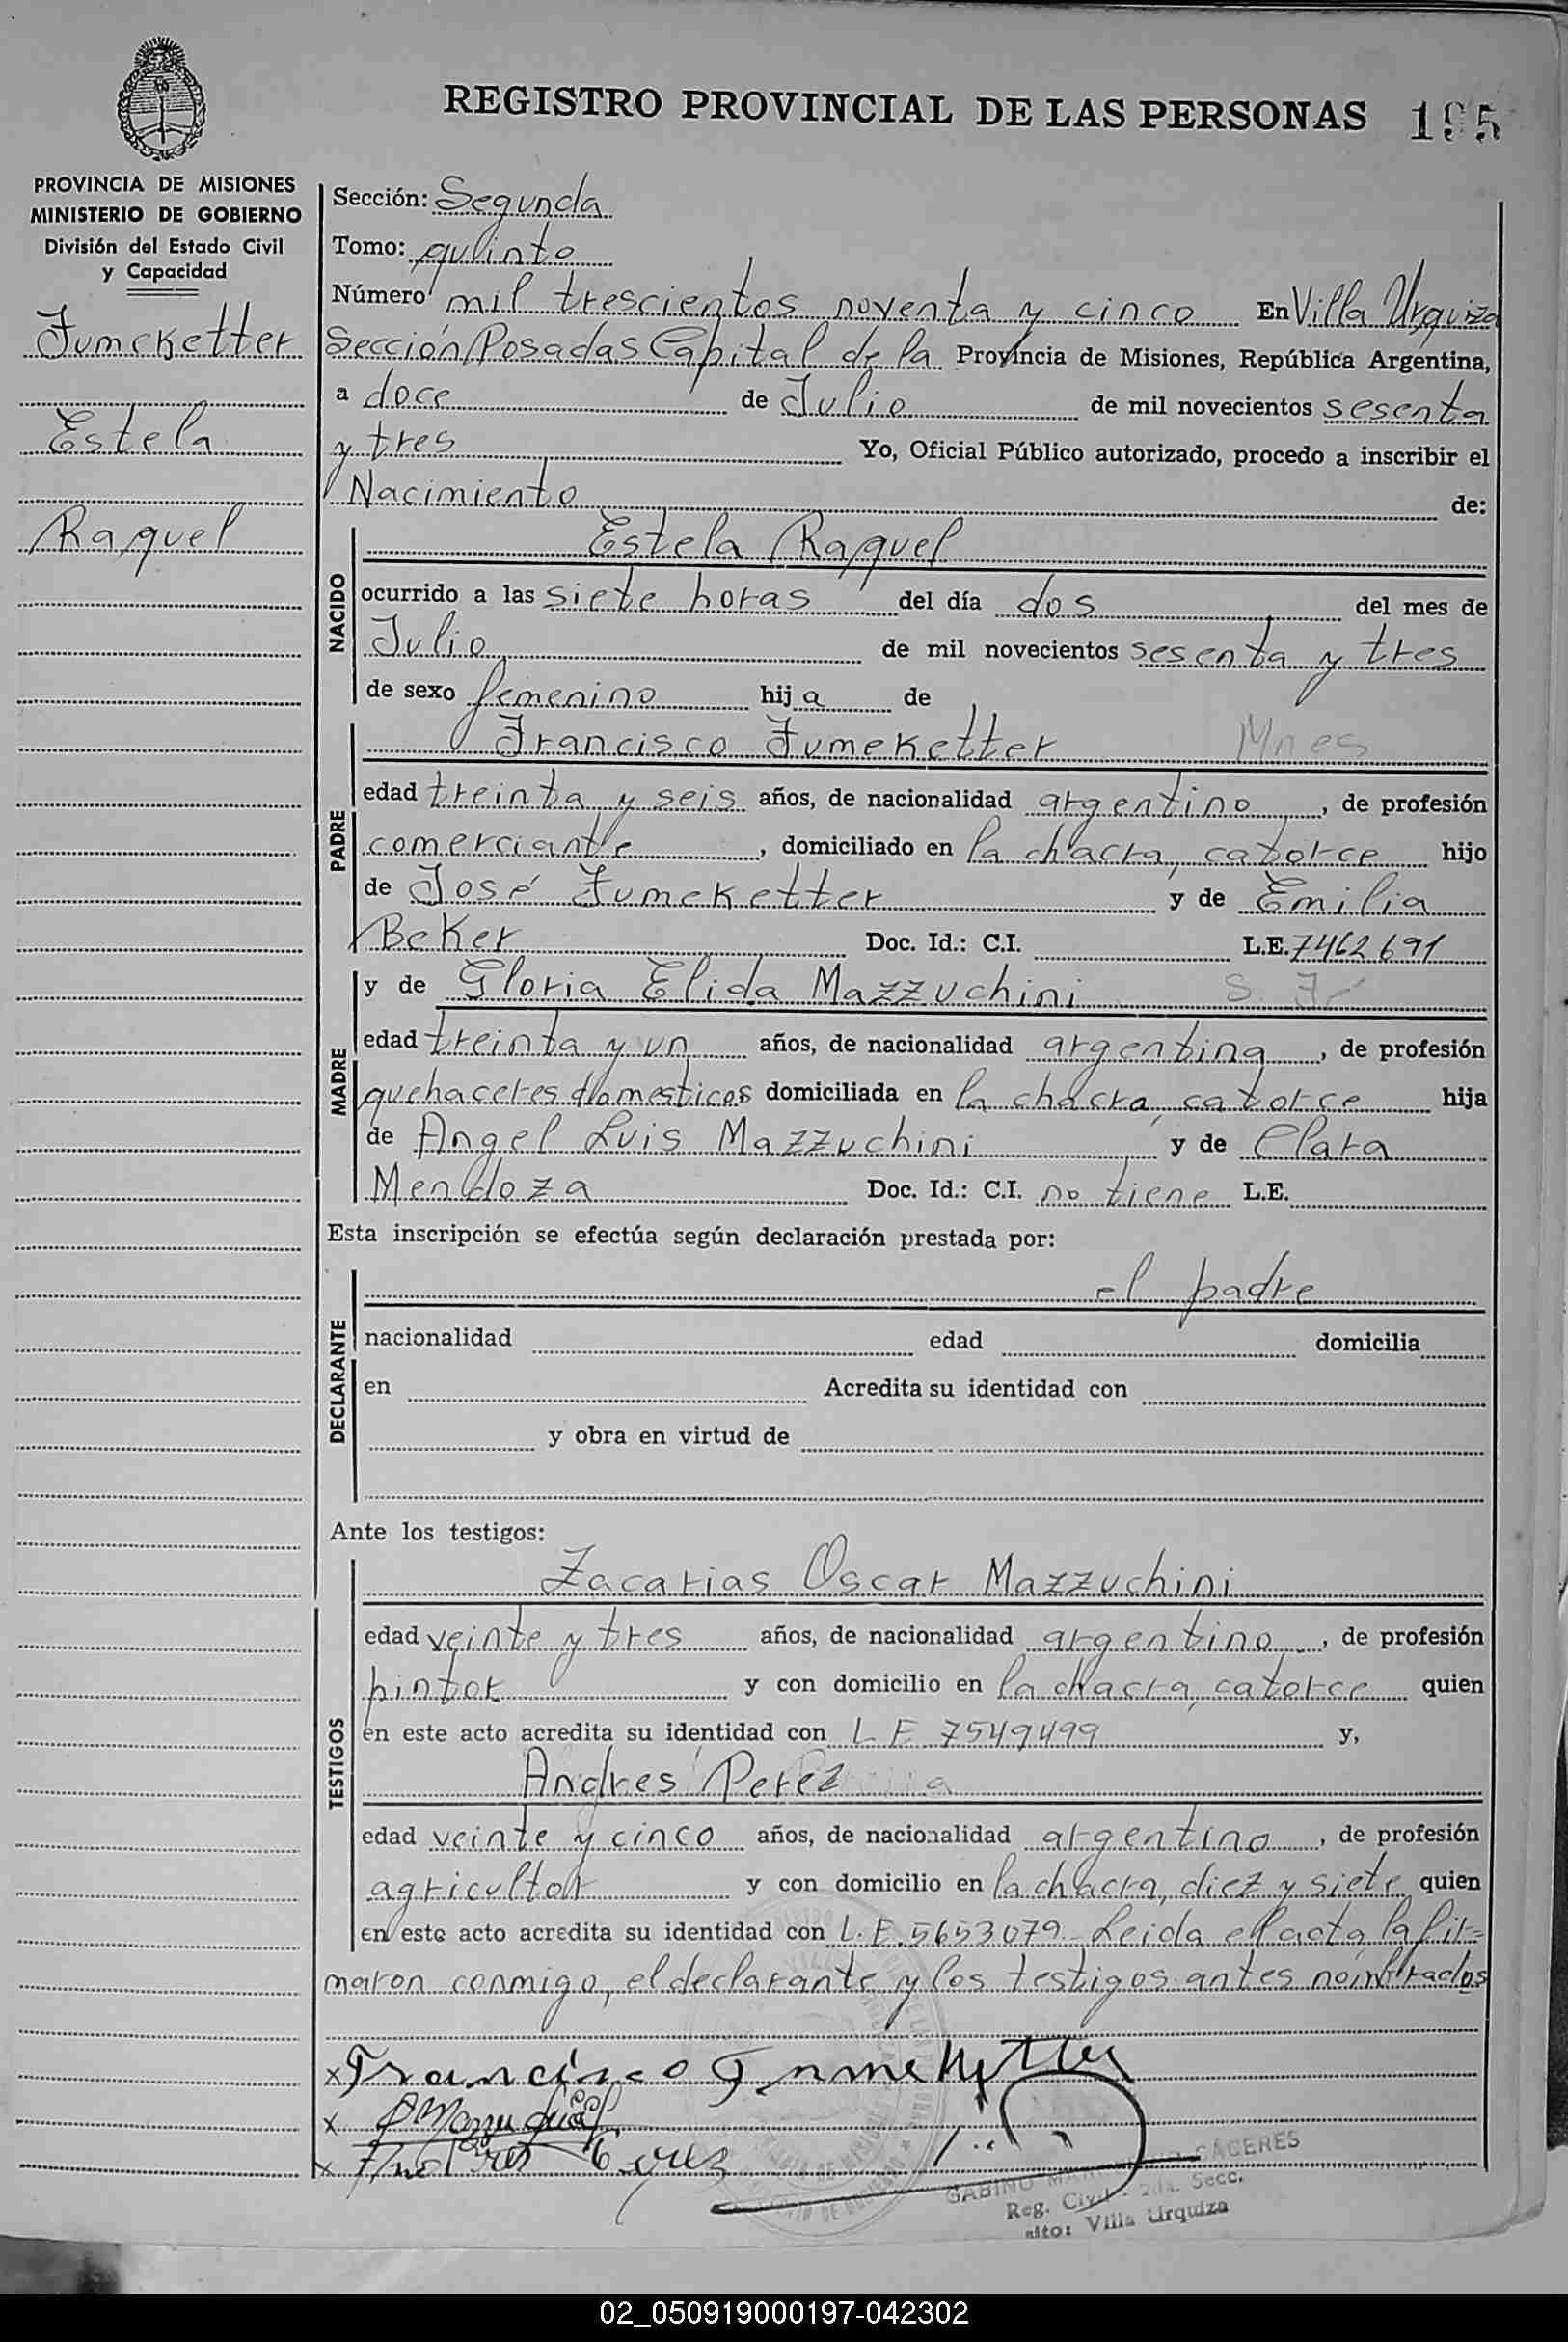 REGISTRO PROVINCIAL DE LAS PERSONAS 195
PROVINCIA DE MISIONES
MINISTERIO DE GOBIERNO
División del Estado Civil
y Capacidad
Fumeketter
Estela
Raquel
Sección: Segunda
Tomo: quinto
Número mil trescientos noventa y cinco En Villa Urquiza
Sección Posadas Capital de la Provincia de Misiones, República Argentina,
a doce de Julio de mil novecientos sesenta
y tres Yo, Oficial Público autorizado, procedo a inscribir el
Nacimiento de:
NACIDO
Estela Raquel
ocurrido a las siete horas del día dos del mes de
Julio de mil novecientos sesenta y tres
de sexo femenino hija de
PADRE
Francisco Fumeketter Mnes
edad treinta y seis años, de nacionalidad argentino, de profesión
comerciante, domiciliado en la chacra, catorce hijo
de José Fumeketter y de Emilia
Beker Doc. Id.: C.I. L.E. 7462691
MADRE
y de Gloria Elida Mazzuchini
edad treinta y un años, de nacionalidad argentina, de profesión
quehaceres domesticos domiciliada en la chacra, catorce hija
de Angel Luis Mazzuchini y de Clara
Mendoza Doc. Id.: C.I. no tiene L.E.
Esta inscripción se efectúa según declaración prestada por:
DECLARANTE
el padre
nacionalidad edad domicilia
en Acredita su identidad con
y obra en virtud de
Ante los testigos:
TESTIGOS
Zacarias Oscar Mazzuchini
edad veinte y tres años, de nacionalidad argentino, de profesión
pintor y con domicilio en la chacra, catorce quien
en este acto acredita su identidad con L E 7549499 y,
Andres Perez
edad veinte y cinco años, de nacionalidad argentino, de profesión
agricultor y con domicilio en la chacra, diez y siete quien
en este acto acredita su identidad con L.E. 5653079 Leida el acta, la fir=
maron conmigo, el declarante y los testigos antes nombrados
x Francisco Fumeketter
x
x Andres Perez
GABINO CACERES
Reg. Civil - 2da. Secc.
Villa Urquiza
02_050919000197-042302